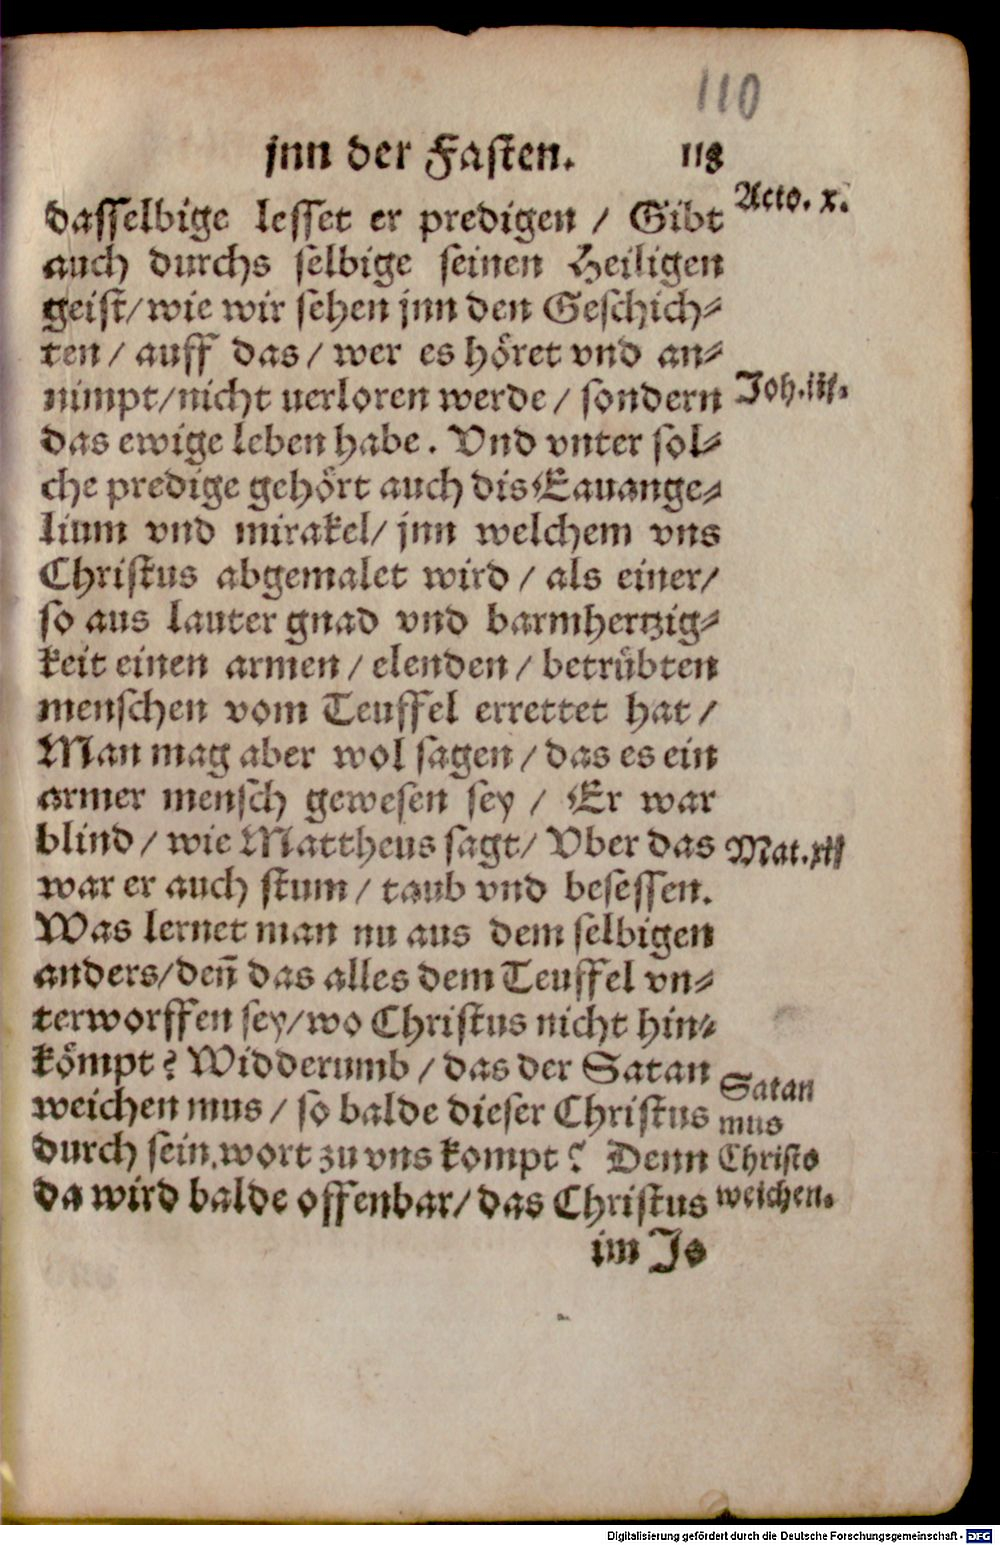 110
jnn der Fasten. 118
dasselbige lesset er predigen / Gibt
Acto. x.
auch durchs selbige seinen Heiligen
geist/ wie wir sehen jnn den Geschich⸗
ten / auff das / wer es höret vnd an⸗
nimpt/nicht uerloren werde / sondern
Joh. iij.
das ewige leben habe. Vnd vnter sol⸗
che predige gehört auch dis Eauange⸗
lium vnd mirakel/ jnn welchem vns
Christus abgemalet wird / als einer/
so aus lauter gnad vnd barmhertzig⸗
keit einen armen / elenden / betrübten
menschen vom Teuffel errettet hat /
Man mag aber wol sagen / das es ein
armer mensch gewesen sey / Er war
blind / wie Mattheus sagt/ Vber das
Mat. xij
war er auch stum / taub vnd besessen.
Was lernet man nu aus dem selbigen
anders/ deñ das alles dem Teuffel vn⸗
terworffen sey/ wo Christus nicht hin⸗
kömpt? Widderumb / das der Satan
weichen mus / so balde dieser Christus
durch sein wort zu vns kompt? Denn
da wird balde offenbar/ das Christus
Satan
mus
Christo
weichen.
im Jo
Digitalisierung gefördert durch die Deutsche Forschungsgemeinschaft - DFG